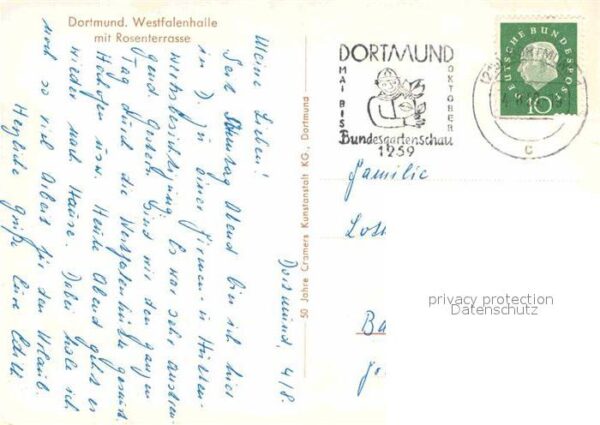 Dortmund. Westfalenhalle
mit Rosenterrasse
Dortmund, 4/8.
Meine Lieben!
Seit Sonntag Abend bin ich hier
in D. zu einer Firmen- u. Hütten-
werksbesichtigung. Es war sehr anstren-
gend. Gestern sind wir den ganzen
Tag durch die Westfalenhütte gesaust.
Hochofen usw. Heute Abend geht es
wieder nach Hause. Dabei habe ich
noch so viel Arbeit für den Urlaub.
Herzliche Grüße Eure Edith
50 Jahre Cramers Kunstanstalt KG., Dortmund
DORTMUND
MAI BIS
OKTOBER
Bundesgartenschau
1959
c
DEUTSCHE BUNDESPOST
10
Familie
privacy protection
Datenschutz